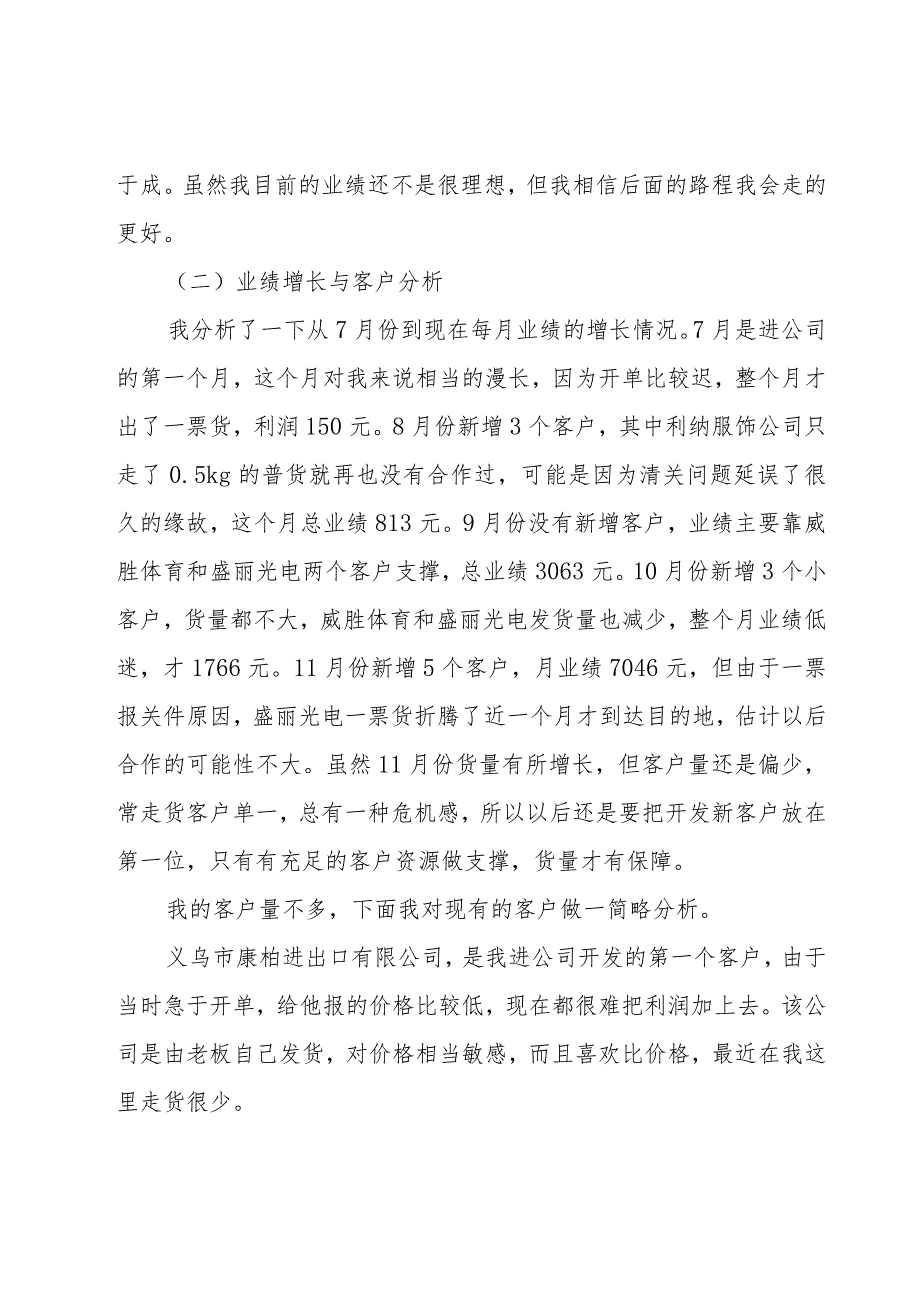 于成。虽然我目前的业绩还不是很理想，但我相信后面的路程我会走的
更好。
（二）业绩增长与客户分析
我分析了一下从7月份到现在每月业绩的增长情况。7月是进公司
的第一个月，这个月对我来说相当的漫长，因为开单比较迟，整个月才
出了一票货，利润150元。8月份新增3个客户，其中利纳服饰公司只
走了0.5kg的普货就再也没有合作过，可能是因为清关问题延误了很
久的缘故，这个月总业绩813元。9月份没有新增客户，业绩主要靠威
胜体育和盛丽光电两个客户支撑，总业绩3063元。10月份新增3个小
客户，货量都不大，威胜体育和盛丽光电发货量也减少，整个月业绩低
迷，才1766元。11月份新增5个客户，月业绩7046元，但由于一票
报关件原因，盛丽光电一票货折腾了近一个月才到达目的地，估计以后
合作的可能性不大。虽然11月份货量有所增长，但客户量还是偏少，
常走货客户单一，总有一种危机感，所以以后还是要把开发新客户放在
第一位，只有有充足的客户资源做支撑，货量才有保障。
我的客户量不多，下面我对现有的客户做一简略分析。
义乌市康柏进出口有限公司，是我进公司开发的第一个客户，由于
当时急于开单，给他报的价格比较低，现在都很难把利润加上去。该公
司是由老板自己发货，对价格相当敏感，而且喜欢比价格，最近在我这
里走货很少。